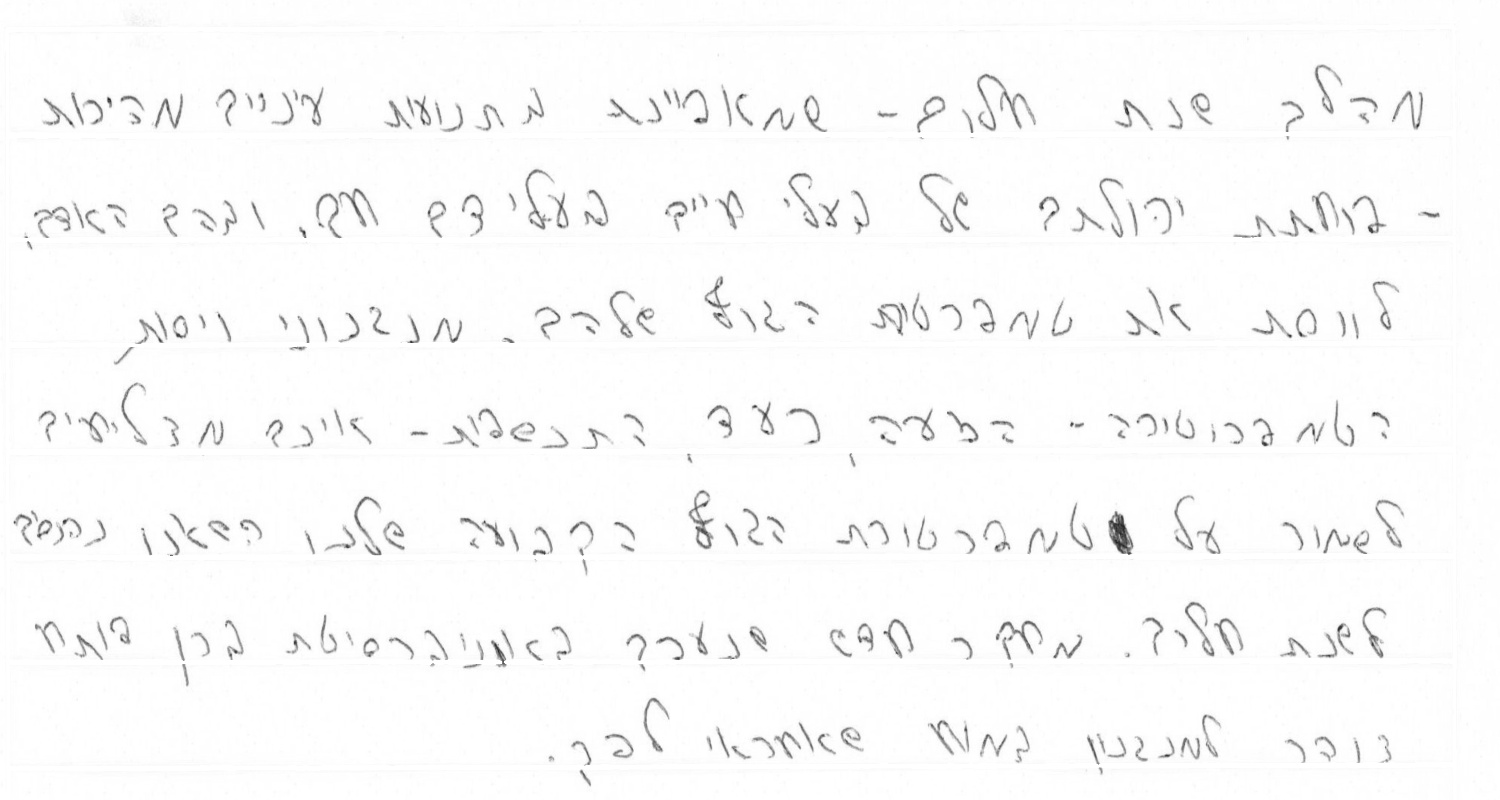 מהלך שנת חלום - שמאפיינת בתנועות עיניים מהירות
- פוחתת יכולתם של בעלי חיים בעלי דם חם, ובהם האדם,
לווסת את טמפרטורת הגוף שלהם. מנגנוני ויסות
הטמפרטורה - הזעה, רעד, התנשפות - אינם מצליחים
לשמור על טמפרטורת הגוף הקבועה שלנו כשאנו נכנסים
לשנת חלום. מחקר חדש שנערך באוניברסיטת ברן פותח
צוהר למנגנון במוח שאחראי לכך.